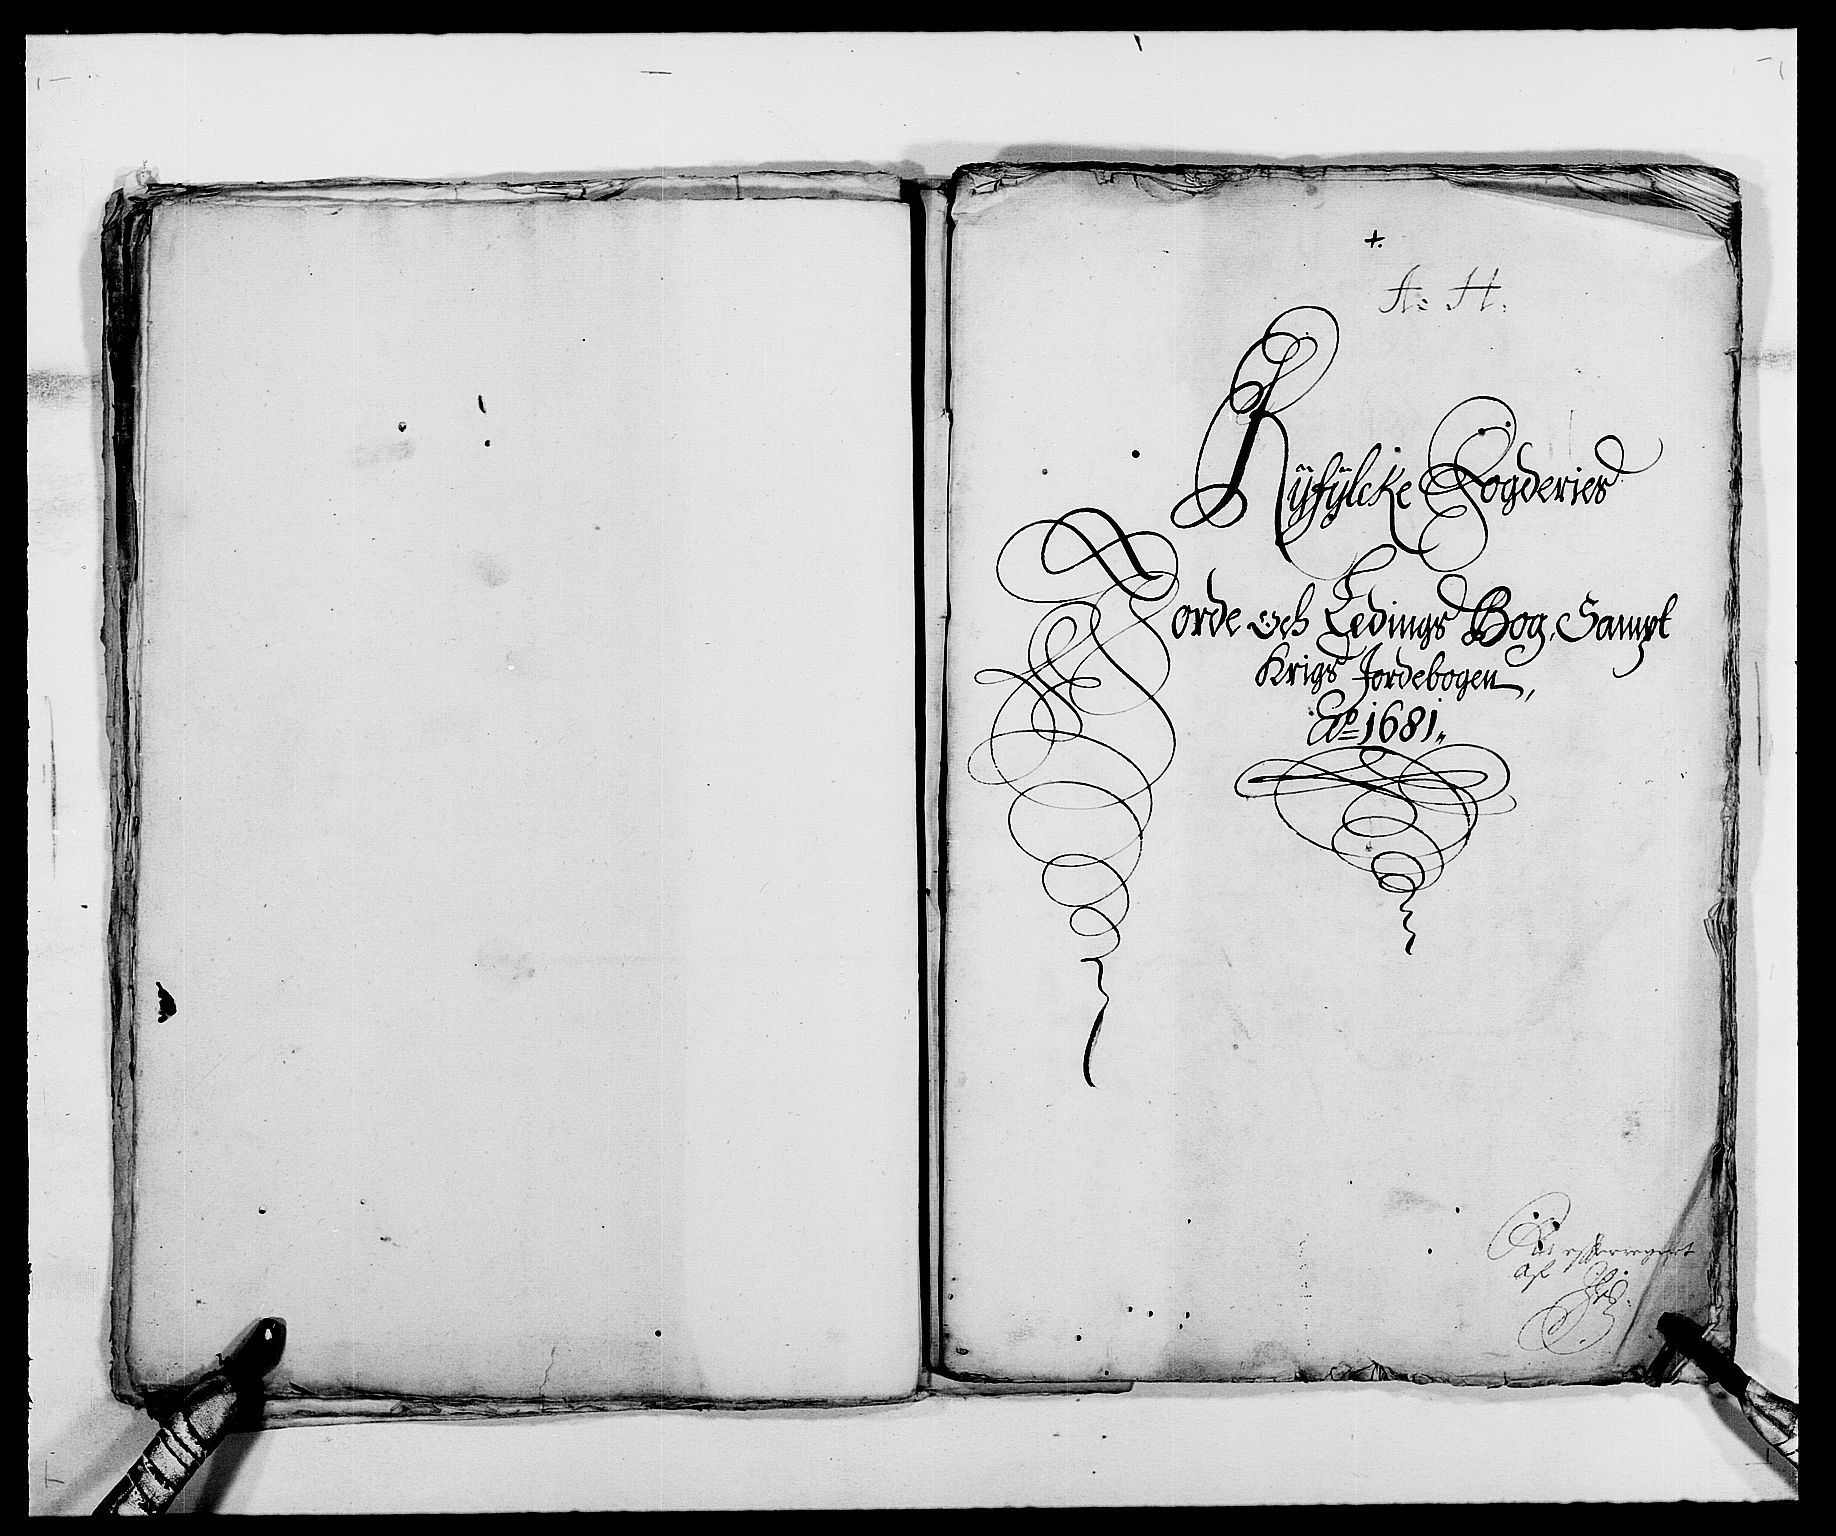 +.
A: H:
Ryfylcke Fogderies
Jorde och Ledings Bog, Sampt
Krigs Jordebogen,
Ao 1681.